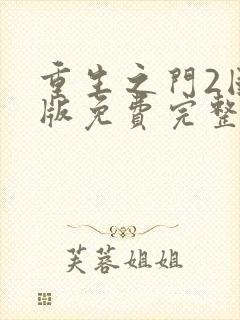 重生之門2
版免費完整
芙蓉姐姐